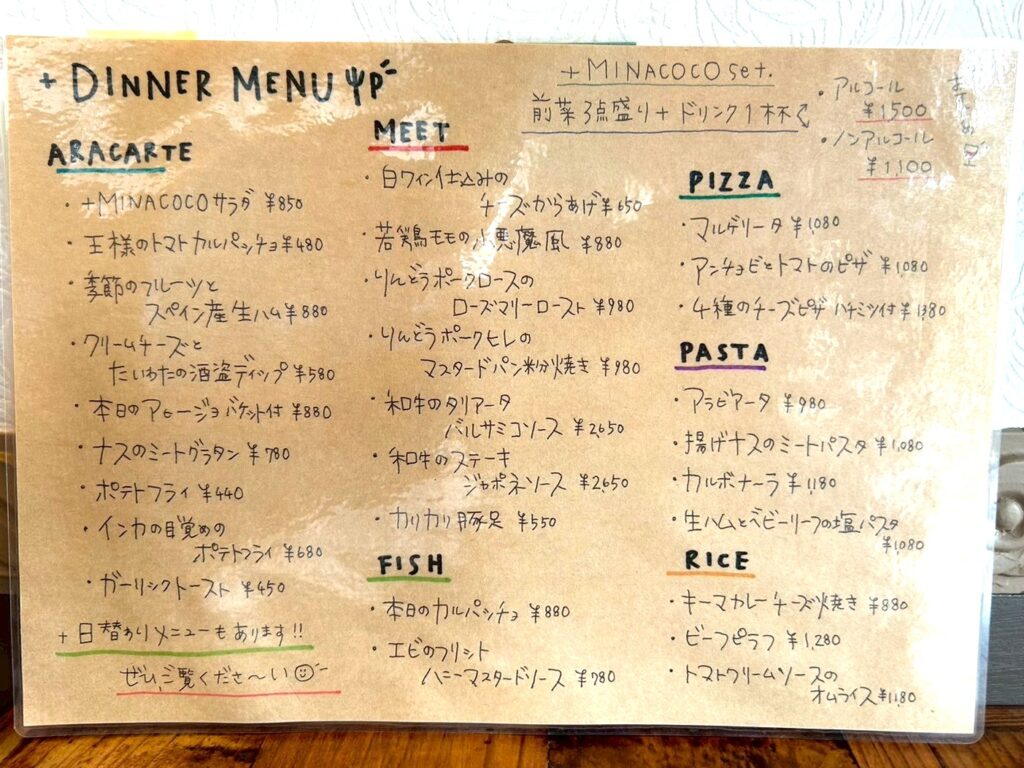 + DINNER MENU
+ MINACOCO set.
前菜3点盛り+ドリンク1杯
・アルコール
¥1,500
・ノンアルコール
¥1,100
ARACARTE
・+MINACOCOサラダ ¥850
・王様のトマトカルパッチョ¥480
・季節のフルーツと
スペイン産生ハム¥880
・クリームチーズと
たいわたの酒盗ディップ ¥580
・本日のアヒージョバケット付 ¥880
・ナスのミートグラタン ¥780
・ポテトフライ ¥440
・インカの目覚めの
ポテトフライ ¥680
・ガーリックトースト ¥450
+日替わりメニューもあります!!
ぜひ、ご覧くださ〜い
MEET
・白ワイン仕込みの
チーズからあげ ¥650
・若鶏モモの小悪魔風 ¥880
・りんどうポークロースの
ローズマリーロースト ¥980
・りんどうポークヒレの
マスタードパン粉焼き ¥980
・和牛のタリアータ
バルサミコソース ¥2,650
・和牛のステーキ
ジャポネソース ¥2,650
・カリカリ豚足 ¥550
FISH
・本日のカルパッチョ ¥880
・エビのフリット
ハニーマスタードソース ¥780
PIZZA
・マルゲリータ ¥1,080
・アンチョビとトマトのピザ ¥1,080
・4種のチーズピザ ハチミツ付 ¥1,380
PASTA
・アラビアータ ¥980
・揚げナスのミートパスタ ¥1,080
・カルボナーラ ¥1,180
・生ハムとベビーリーフの塩パスタ
¥1,080
RICE
・キーマカレーチーズ焼き ¥880
・ビーフピラフ ¥1,280
・トマトクリームソースの
オムライス ¥1,180